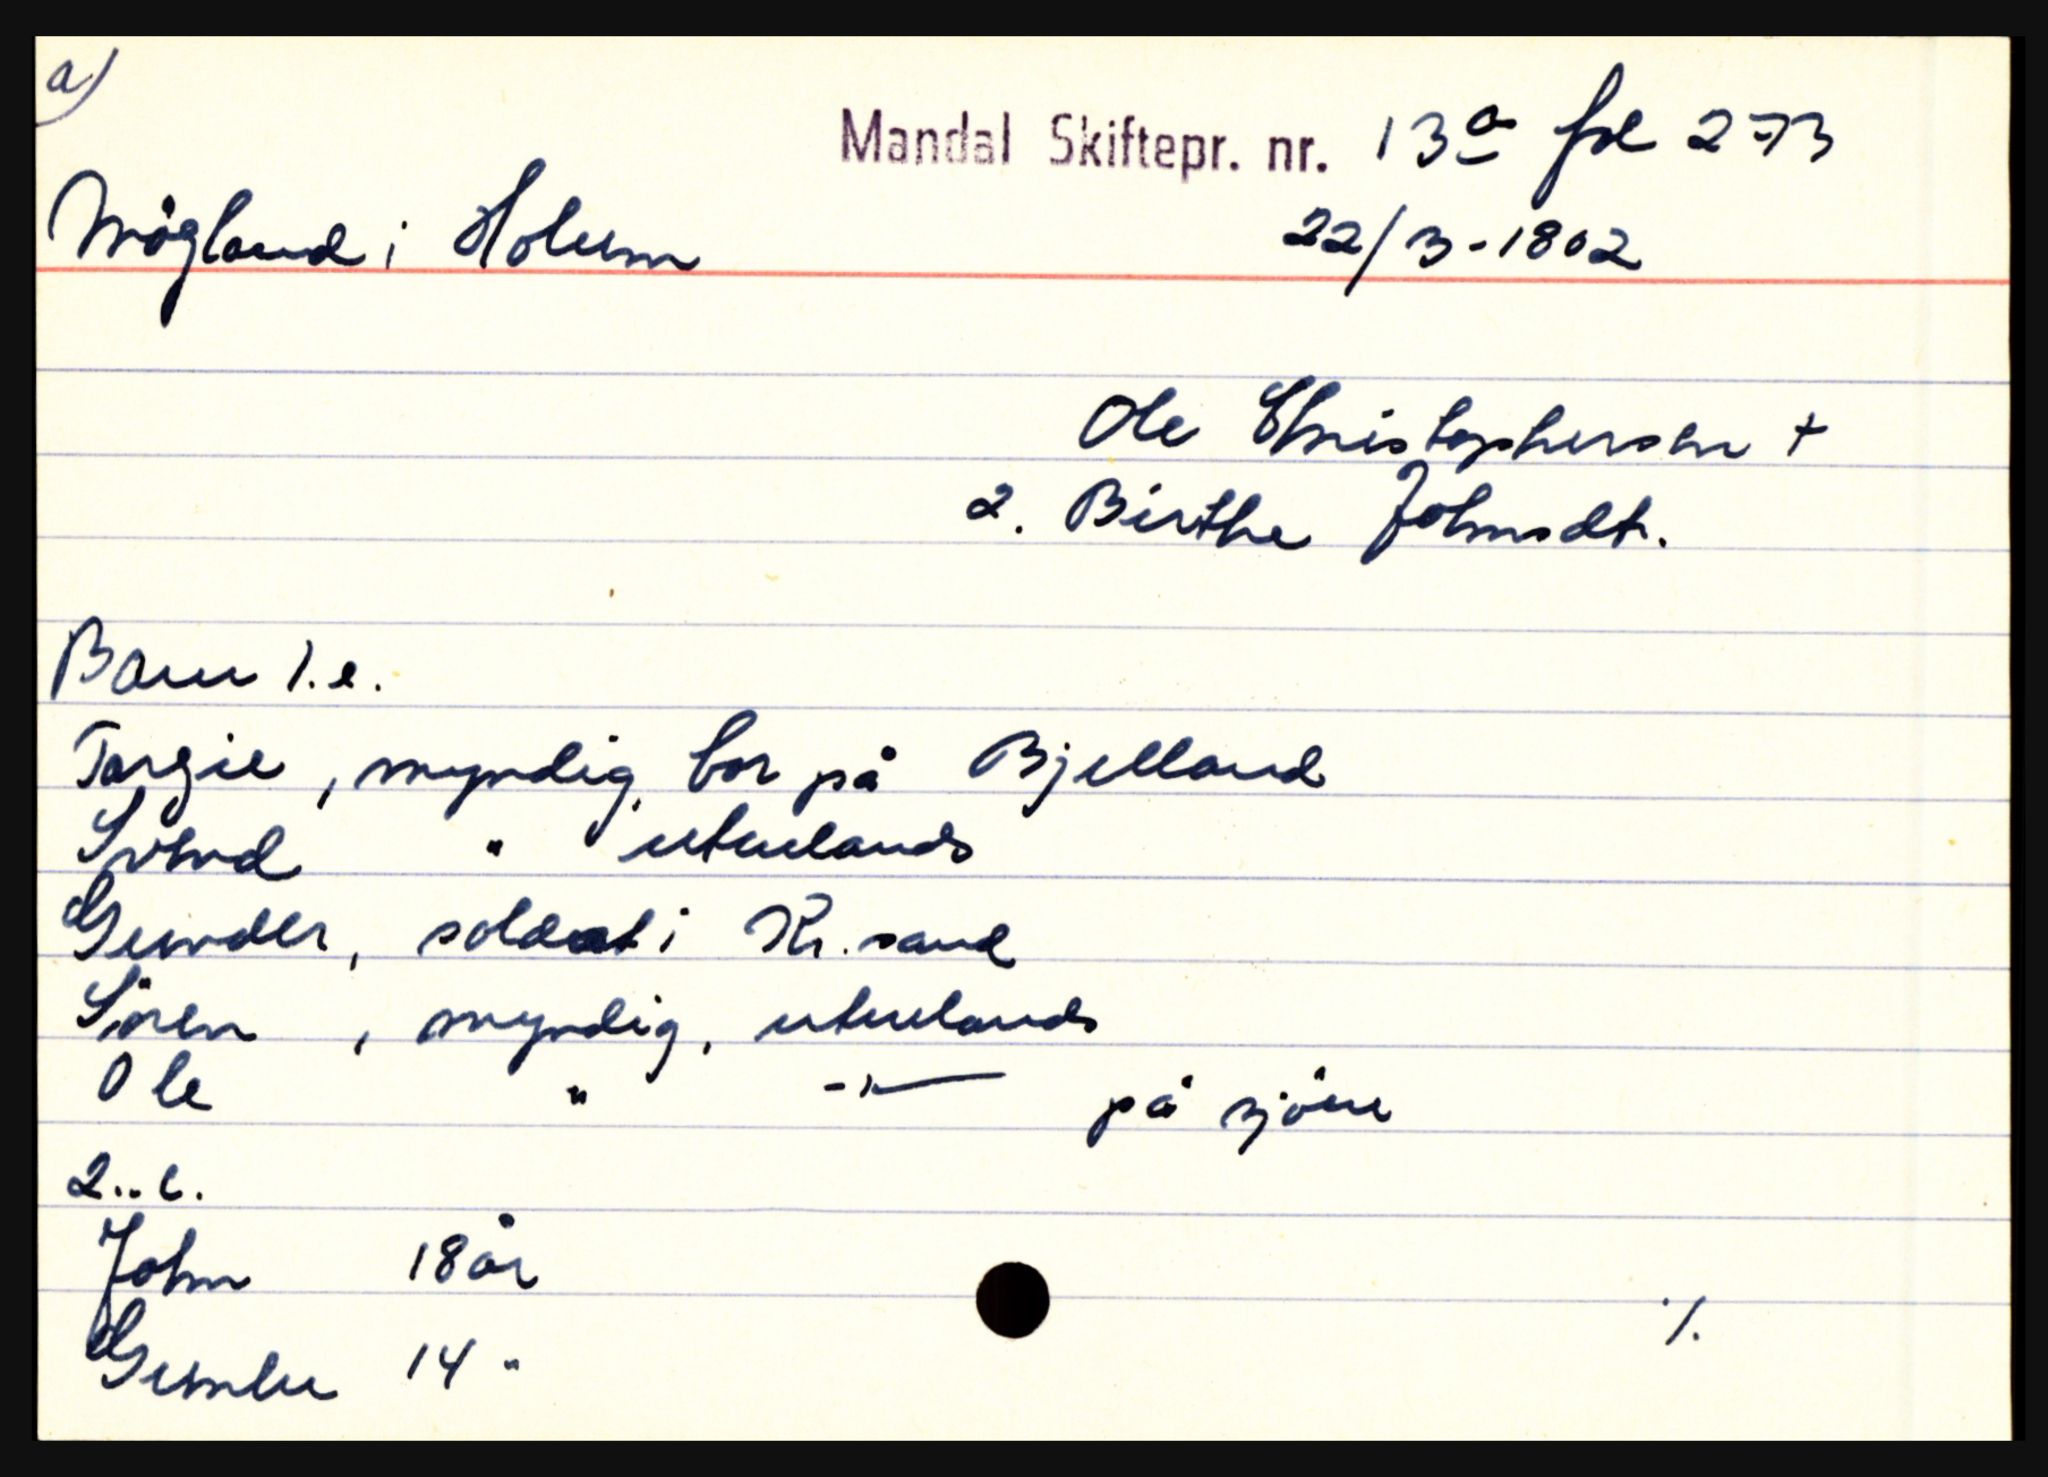 a)
Mandal Skiftepr. nr. 13a fol 273
Mögland i Holum 22/3-1802
Ole Christophersen +
2. Birthe Johnsdtr.
Barn 1.e.
Torgie, myndig, bor på Bjelland
" utenlands
Gunder, soldat i Kr.sand
Sören, myndig, utenlands
Ole " -"- på sjöen
2..e.
John 18 år
14 "
./.